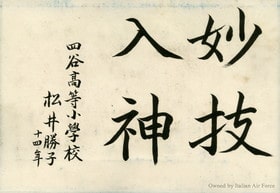 妙技
入神
四谷高等小學校
松井勝子
十四年
Owned by Italian Air Force